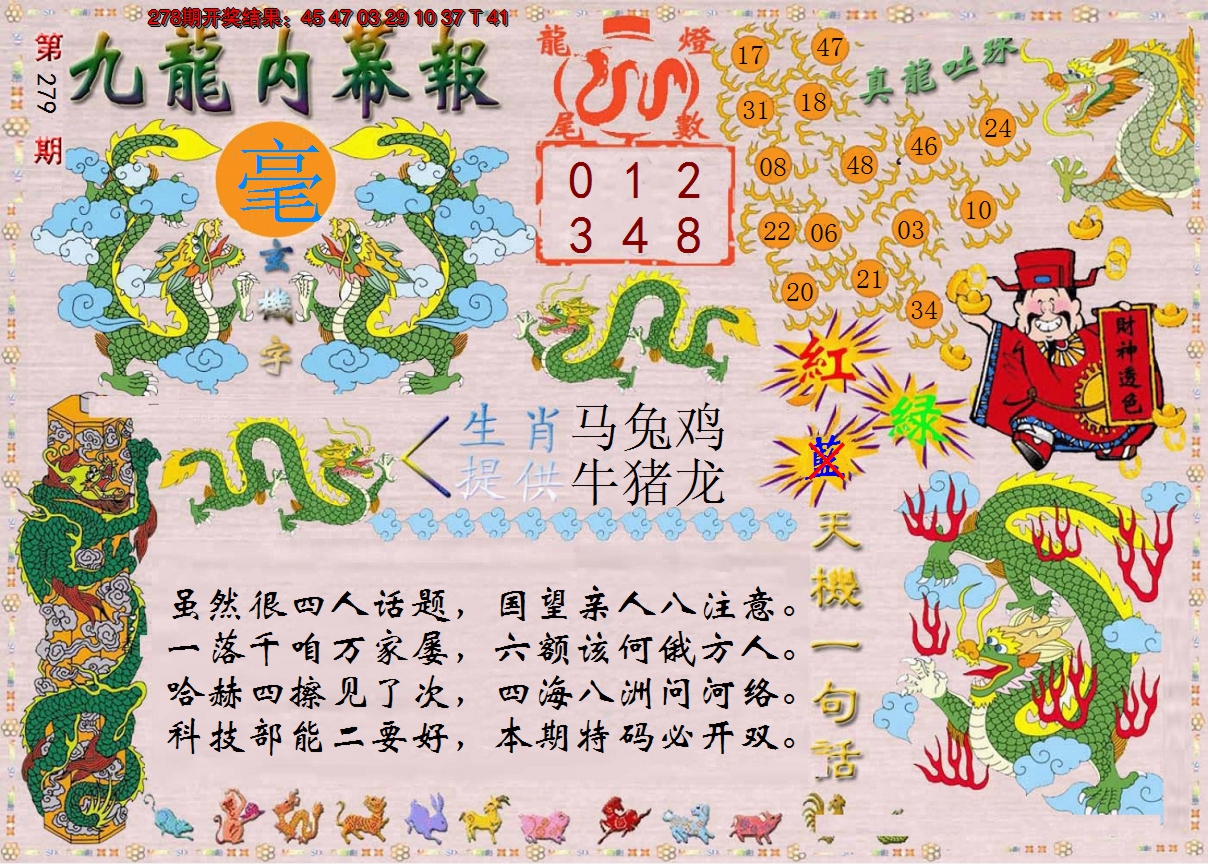 278期开奖结果：45 47 03 29 10 37 T 41
第279期
九龍内幕報
毫
玄機字
龍燈
尾數
0 1 2
3 4 8
真龍吐珠
17 47
31 18
08 48 46 24
22 06 03 10
20 21 34
紅
綠
藍
財神透色
生肖 马兔鸡
提供 牛猪龙
天機一句話
虽然很四人话题，国望亲人八注意。
一落千咱万家屡，六额该何俄方人。
哈赫四擦见了次，四海八洲问河络。
科技部能二要好，本期特码必开双。